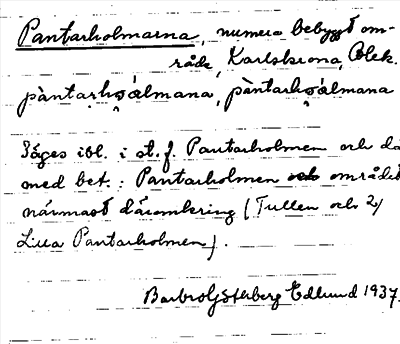 Pantarholmarna, numera bebyggt om-
råde, Karlskrona, Blek.
pàntarhoálmana, pàntarhoálmana
Säges ibl. i st. f. Pantarholmen och då
med bet.: Pantarholmen och området
närmast däromkring (Tullen och
Lilla Pantarholmen).
Barbro Edlund 1937.